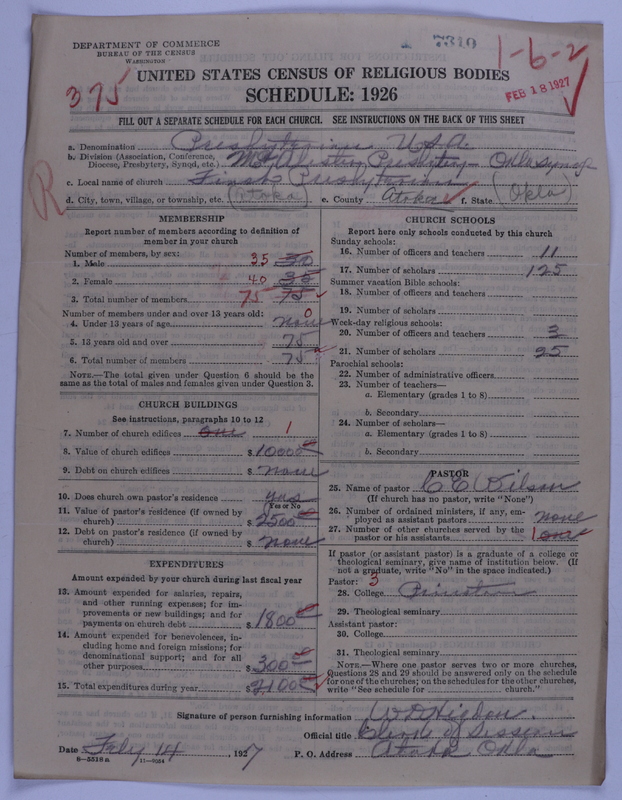 7310
1-6-2
DEPARTMENT OF COMMERCE
BUREAU OF THE CENSUS
WASHINGTON
FEB 18 1927
375
UNITED STATES CENSUS OF RELIGIOUS BODIES
SCHEDULE: 1926
FILL OUT A SEPARATE SCHEDULE FOR EACH CHURCH. SEE INSTRUCTIONS ON THE BACK OF THIS SHEET
a. Denomination Presbyterian U.S.A.
b. Division (Association, Conference, Diocese, Presbytery, Synod, etc.) McAlester Presbytery - Okla Synod
c. Local name of church First Presbyterian
R
d. City, town, village, or township, etc. (Atoka) e. County Atoka f. State (Okla)
MEMBERSHIP
Report number of members according to definition of
member in your church
Number of members, by sex:
1. Male 35
2. Female 40 35
3. Total number of members 75 75
Number of members under and over 13 years old:
4. Under 13 years of age none 0
5. 13 years old and over 75
6. Total number of members 75
NOTE.—The total given under Question 6 should be
same as the total of males and females given under Question 3.
CHURCH BUILDINGS
See instructions, paragraphs 10 to 12
7. Number of church edifices one 1
8. Value of church edifices $ 10000
9. Debt on church edifices $ none
10. Does church own pastor's residence yes
Yes or No
11. Value of pastor's residence (if owned by
church) $ 2500
12. Debt on pastor's residence (if owned by
church) $ none
EXPENDITURES
Amount expended by your church during last fiscal year
13. Amount expended for salaries, repairs,
and other running expenses; for im-
provements or new buildings; and for
payments on church debt $ 1800
14. Amount expended for benevolences, in-
cluding home and foreign missions; for
denominational support; and for all
other purposes $ 300
15. Total expenditures during year $ 2100
CHURCH SCHOOLS
Report here only schools conducted by this church
Sunday schools:
16. Number of officers and teachers 11
17. Number of scholars 125
Summer vacation Bible schools:
18. Number of officers and teachers
19. Number of scholars
Week-day religious schools:
20. Number of officers and teachers 3
21. Number of scholars 25
Parochial schools:
22. Number of administrative officers
23. Number of teachers—
a. Elementary (grades 1 to 8)
b. Secondary
24. Number of scholars—
a. Elementary (grades 1 to 8)
b. Secondary
PASTOR
25. Name of pastor C E Wilson
(If church has no pastor, write "None")
26. Number of ordained ministers, if any, em-
ployed as assistant pastors none
27. Number of other churches served by the
pastor or his assistants 1 one
If pastor (or assistant pastor) is a graduate of a college or
theological seminary, give name of institution below. (If
not a graduate, write "No" in the space indicated.)
Pastor: 3
28. College Princeton
29. Theological seminary
Assistant pastor:
30. College
31. Theological seminary
NOTE.—Where one pastor serves two or more churches,
Questions 28 and 29 should be answered only on the schedule
for one of the churches; on the schedules for the other churches,
write "See schedule for church."
Signature of person furnishing information W D Higdon.
Official title Clerk of Session
Date Feby 14 1927 P. O. Address Atoka Okla
8—5518a 11—9554